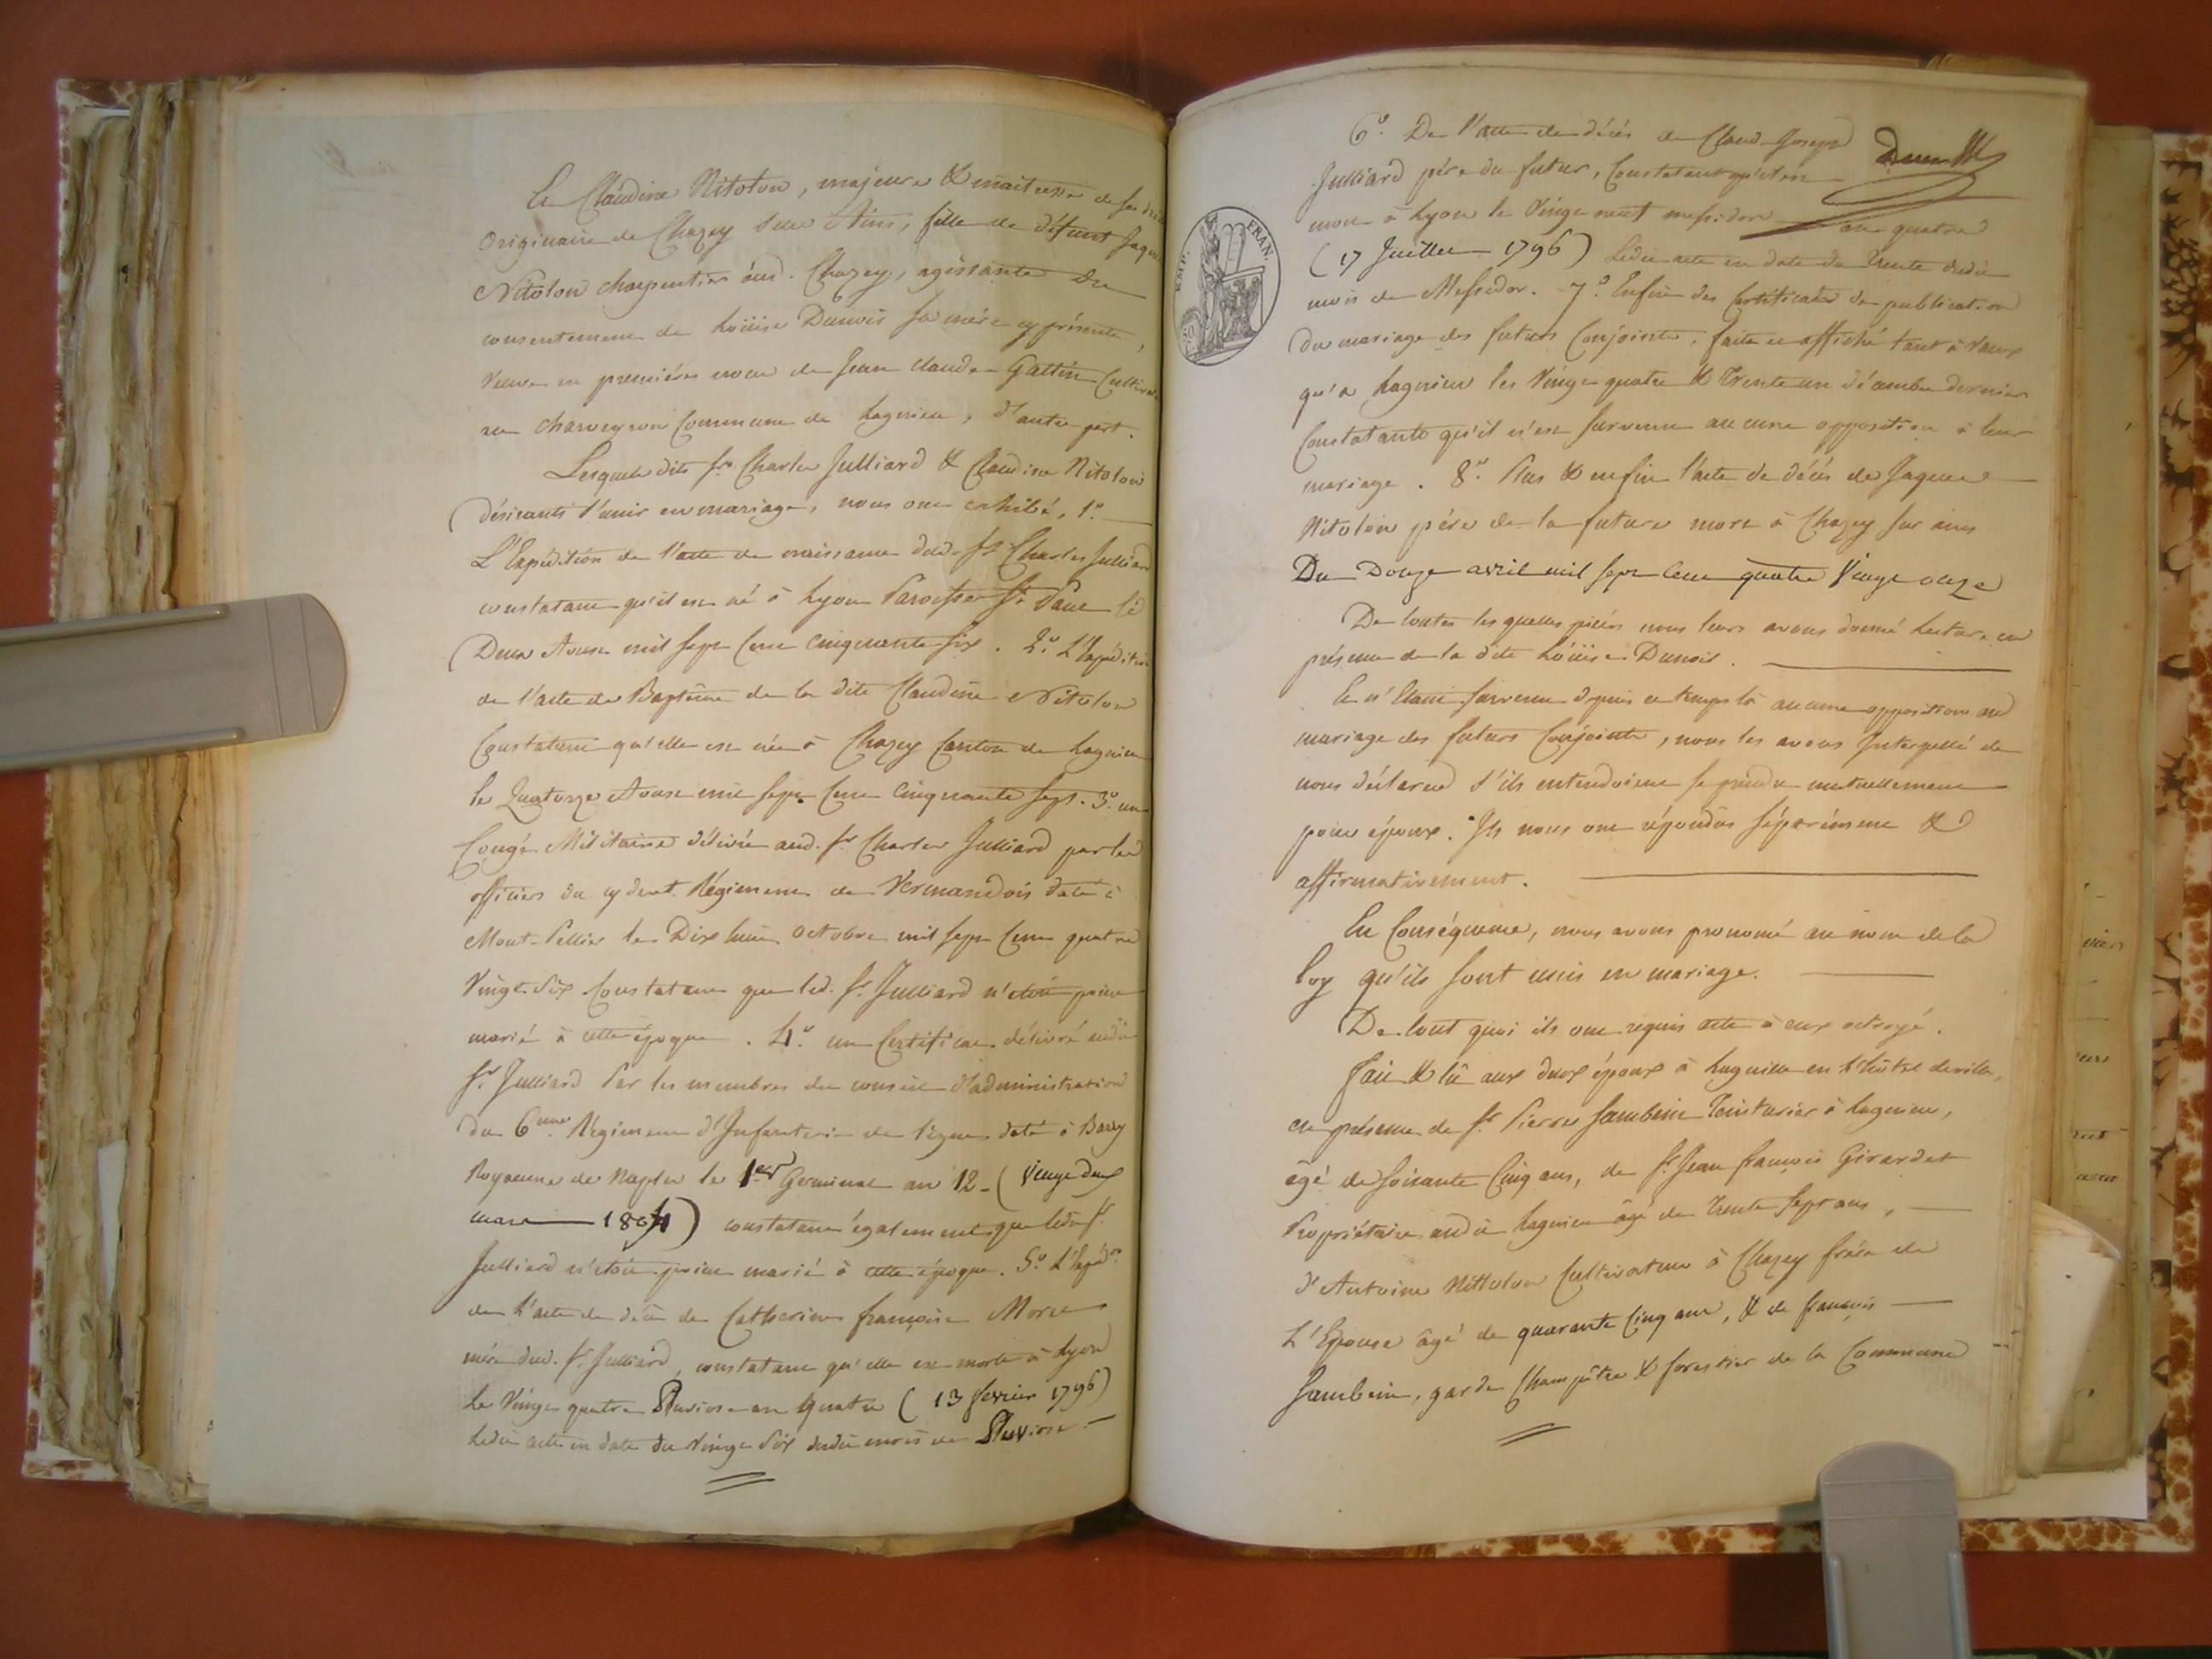 Et Claudine Nitolon, majeure & maitresse de ses
Originaire de Chazey sur Ains, fille de défunt Jaques
Nitolon charpentier aud. Chazey, agissante du
consentement de Loüise Dunois sa mére cy présente,
veuve en premiéres noces de Jean Claude Gattin Cultivat
au Charveyron Commune de Lagnieu, d'autre part.
Lesquels dits Sr. Charles Julliard & Claudine Nitolon
désirants s'unir en mariage, nous ont exhibé, 1.°
L'Expédition de l'acte de naissance dud. Sr. Charles Julliard
constatant qu'il est né à Lyon Paroisse St. Paul le
Deux Aoust mil sept Cent Cinquante Six. 2.° L'Expédition
de l'acte de Baptême de la dite Claudine Nitolon
Constatant qu'elle est née à Chazey Canton de Lagnieu
le Quatorze Aoust mil sept Cent Cinquante sept. 3.° un
Congé Militaire délivré aud. Sr. Charles Julliard par les
officiers du cy devt Régiment de Vermandois daté à
Mont-Pellier le Dix huit Octobre mil sept Cent quatre
Vingt-Six Constatant que led. Sr. Julliard n'étoit point
marié à cette époque. 4.° un Certificat délivré audit
Sr. Julliard Par les membres du conseil d'administration
du 6eme. Régiment d'Infanterie de ligne daté à Barry
Royaume de Naples le 1er Germinal an 12 - (Vingt deux
mars 1804) constatant également que ledit Sr.
Julliard n'étoit point marié à cette époque. 5.° L'Expéd.on
de l'acte de décès de Catherine françoise More
mére dud. Sr. Julliard, constatant qu'elle est morte à Lyon
le Vingt quatre Pluviose an Quatre (13 fevrier 1796)
Ledit acte en date du Vingt Six dudit mois de Pluviose
6.° De l'acte de décès de Claud-Joseph
Julliard pére du futur, Constatant qu'il est
mort à Lyon le Vingt neuf messidor an quatre
(17 Juillet 1796) Ledit acte en date du trente dudit
mois de Messidor. 7.° Enfin des Certificats de publication
du mariage des futurs Conjoints, faite et affiché tant à Vaux
qu'a Lagnieu les Vingt quatre & Trente un décembre dernier
Constatants qu'il n'est survenu aucune opposition à leur
mariage. 8.° Plus & enfin l'acte de décès de Jaques
Nitolon pére de la future mort à Chazey sur ains
Du Douze avril mil sept Cent quatre Vingt onze
De toutes les quelles piéces nous leurs avons donné lecture en
présence de la dite Loüise Dunois.
Et n'Etant survenu depuis ce temps là aucune opposition au
mariage des futurs Conjoints, nous les avons Interpellé de
nous déclarer s'ils entendoient se prendre mutuellement
pour époux. Ils nous ont répondus séparément &
affirmativement.
En Conséquence, nous avons prononcé au nom de la
loy qu'ils sont unis en mariage.
De tout quoi ils ont requis acte à eux octroyé.
Fait & lû aux deux époux à Lagnieu en L'hôtel de ville,
en présence de Sr. Pierre Jambein Teinturier à Lagnieu,
âgé de Soixante Cinq ans, de Sr. Jean françois Girardet
Propriétaire audit Lagnieu âgé de Trente Sept ans,
d'Antoine Nittolon Cultivateur à Chazey frére de
L'Epouse âgé de quarante Cinq ans, & de françois
Jambein, garde Champêtre & forestier de la Commune
EMP. FRAN.